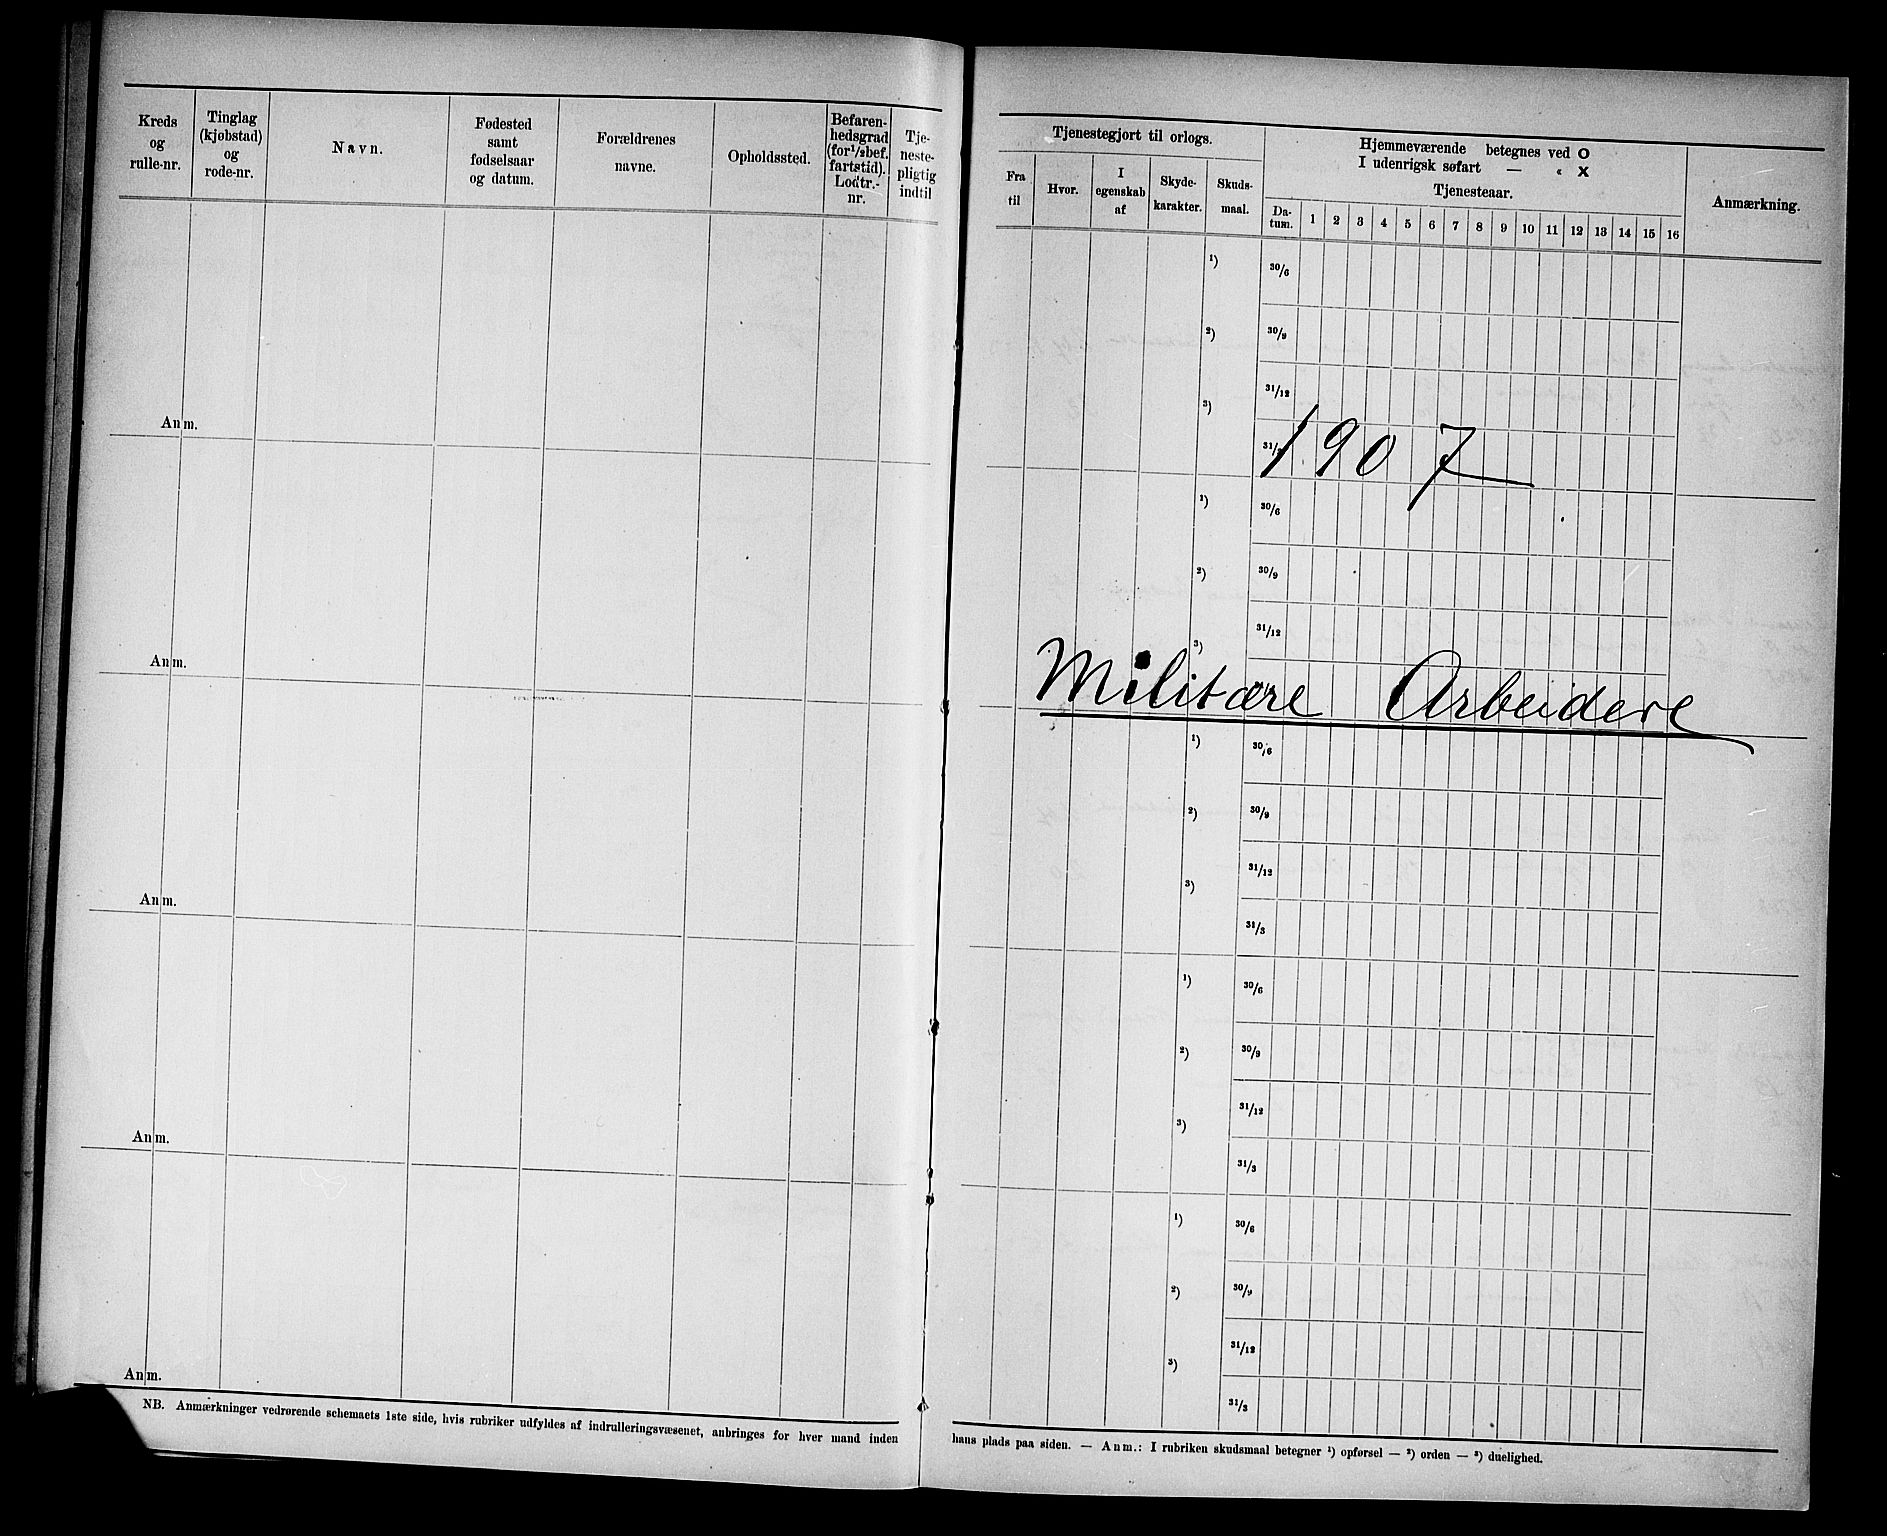 Kreds
og
rulle-nr.
Tinglag
(kjøbstad)
og
rode-nr.
Navn.
Fødested
samt
fødselsaar
og datum.
Forældrenes
navne.
Opholdssted.
Befaren-
hedsgrad
(for ½ bef.
fartstid).
Lodtr.-
nr.
Tje-
neste-
pligtig
indtil
Anm.
Anm.
Anm.
Anm.
Anm.
NB. Anmærkninger vedrørende schemaets 1ste side, hvis rubriker udfyldes af indrulleringsvæsenet, anbringes for hver mand inden
Tjenestegjort til orlogs.
Fra
til
Hvor.
I
egenskab
af
Skyde-
karakter.
Skuds-
maal.
Hjemmeværende betegnes ved O
I udenrigsk søfart — « X
Tjenesteaar.
Da-
tum.
1 2 3 4 5 6 7 8 9 10 11 12 13 14 15 16
Anmærkning.
¹) 30/6
²) 30/9
³) 31/12
1907
¹) 30/6
²) 30/9
³) 31/12
Militære Arbeidere
¹) 30/6
²) 30/9
³) 31/12
31/3
¹) 30/6
²) 30/9
³) 31/12
31/3
¹) 30/6
²) 30/9
³) 31/12
31/3
hans plads paa siden. — Anm.: I rubriken skudsmaal betegner ¹) opførsel — ²) orden — ³) duelighed.